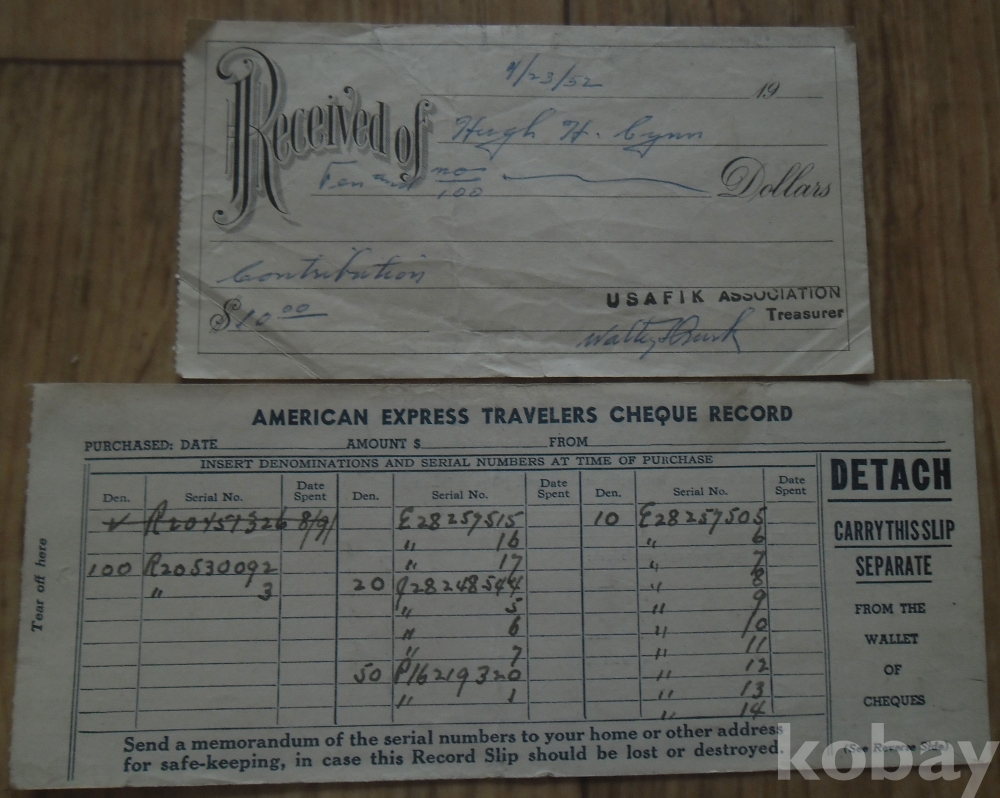 9/23/52 19
Received of Hugh H. Cynn
Ten and no/100 Dollars
Contribution
$10.00
USAFIK ASSOCIATION
Treasurer
AMERICAN EXPRESS TRAVELERS CHEQUE RECORD
PURCHASED: DATE AMOUNT $ FROM
INSERT DENOMINATIONS AND SERIAL NUMBERS AT TIME OF PURCHASE
Den. Serial No. Date Spent Den. Serial No. Date Spent Den. Serial No. Date Spent
R20457326 8/9/ E28257515 10 E28257505
" 16 " 6
100 R20530092 " 17 " 7
" 3 20 J28248544 " 8
" 5 " 9
" 6 " 10
" 7 " 11
50 P16219320 " 12
" 1 " 13
" 14
Tear off here
DETACH
CARRY THIS SLIP
SEPARATE
FROM THE
WALLET
OF
CHEQUES
(See Reverse Side)
Send a memorandum of the serial numbers to your home or other address
for safe-keeping, in case this Record Slip should be lost or destroyed.
kobay